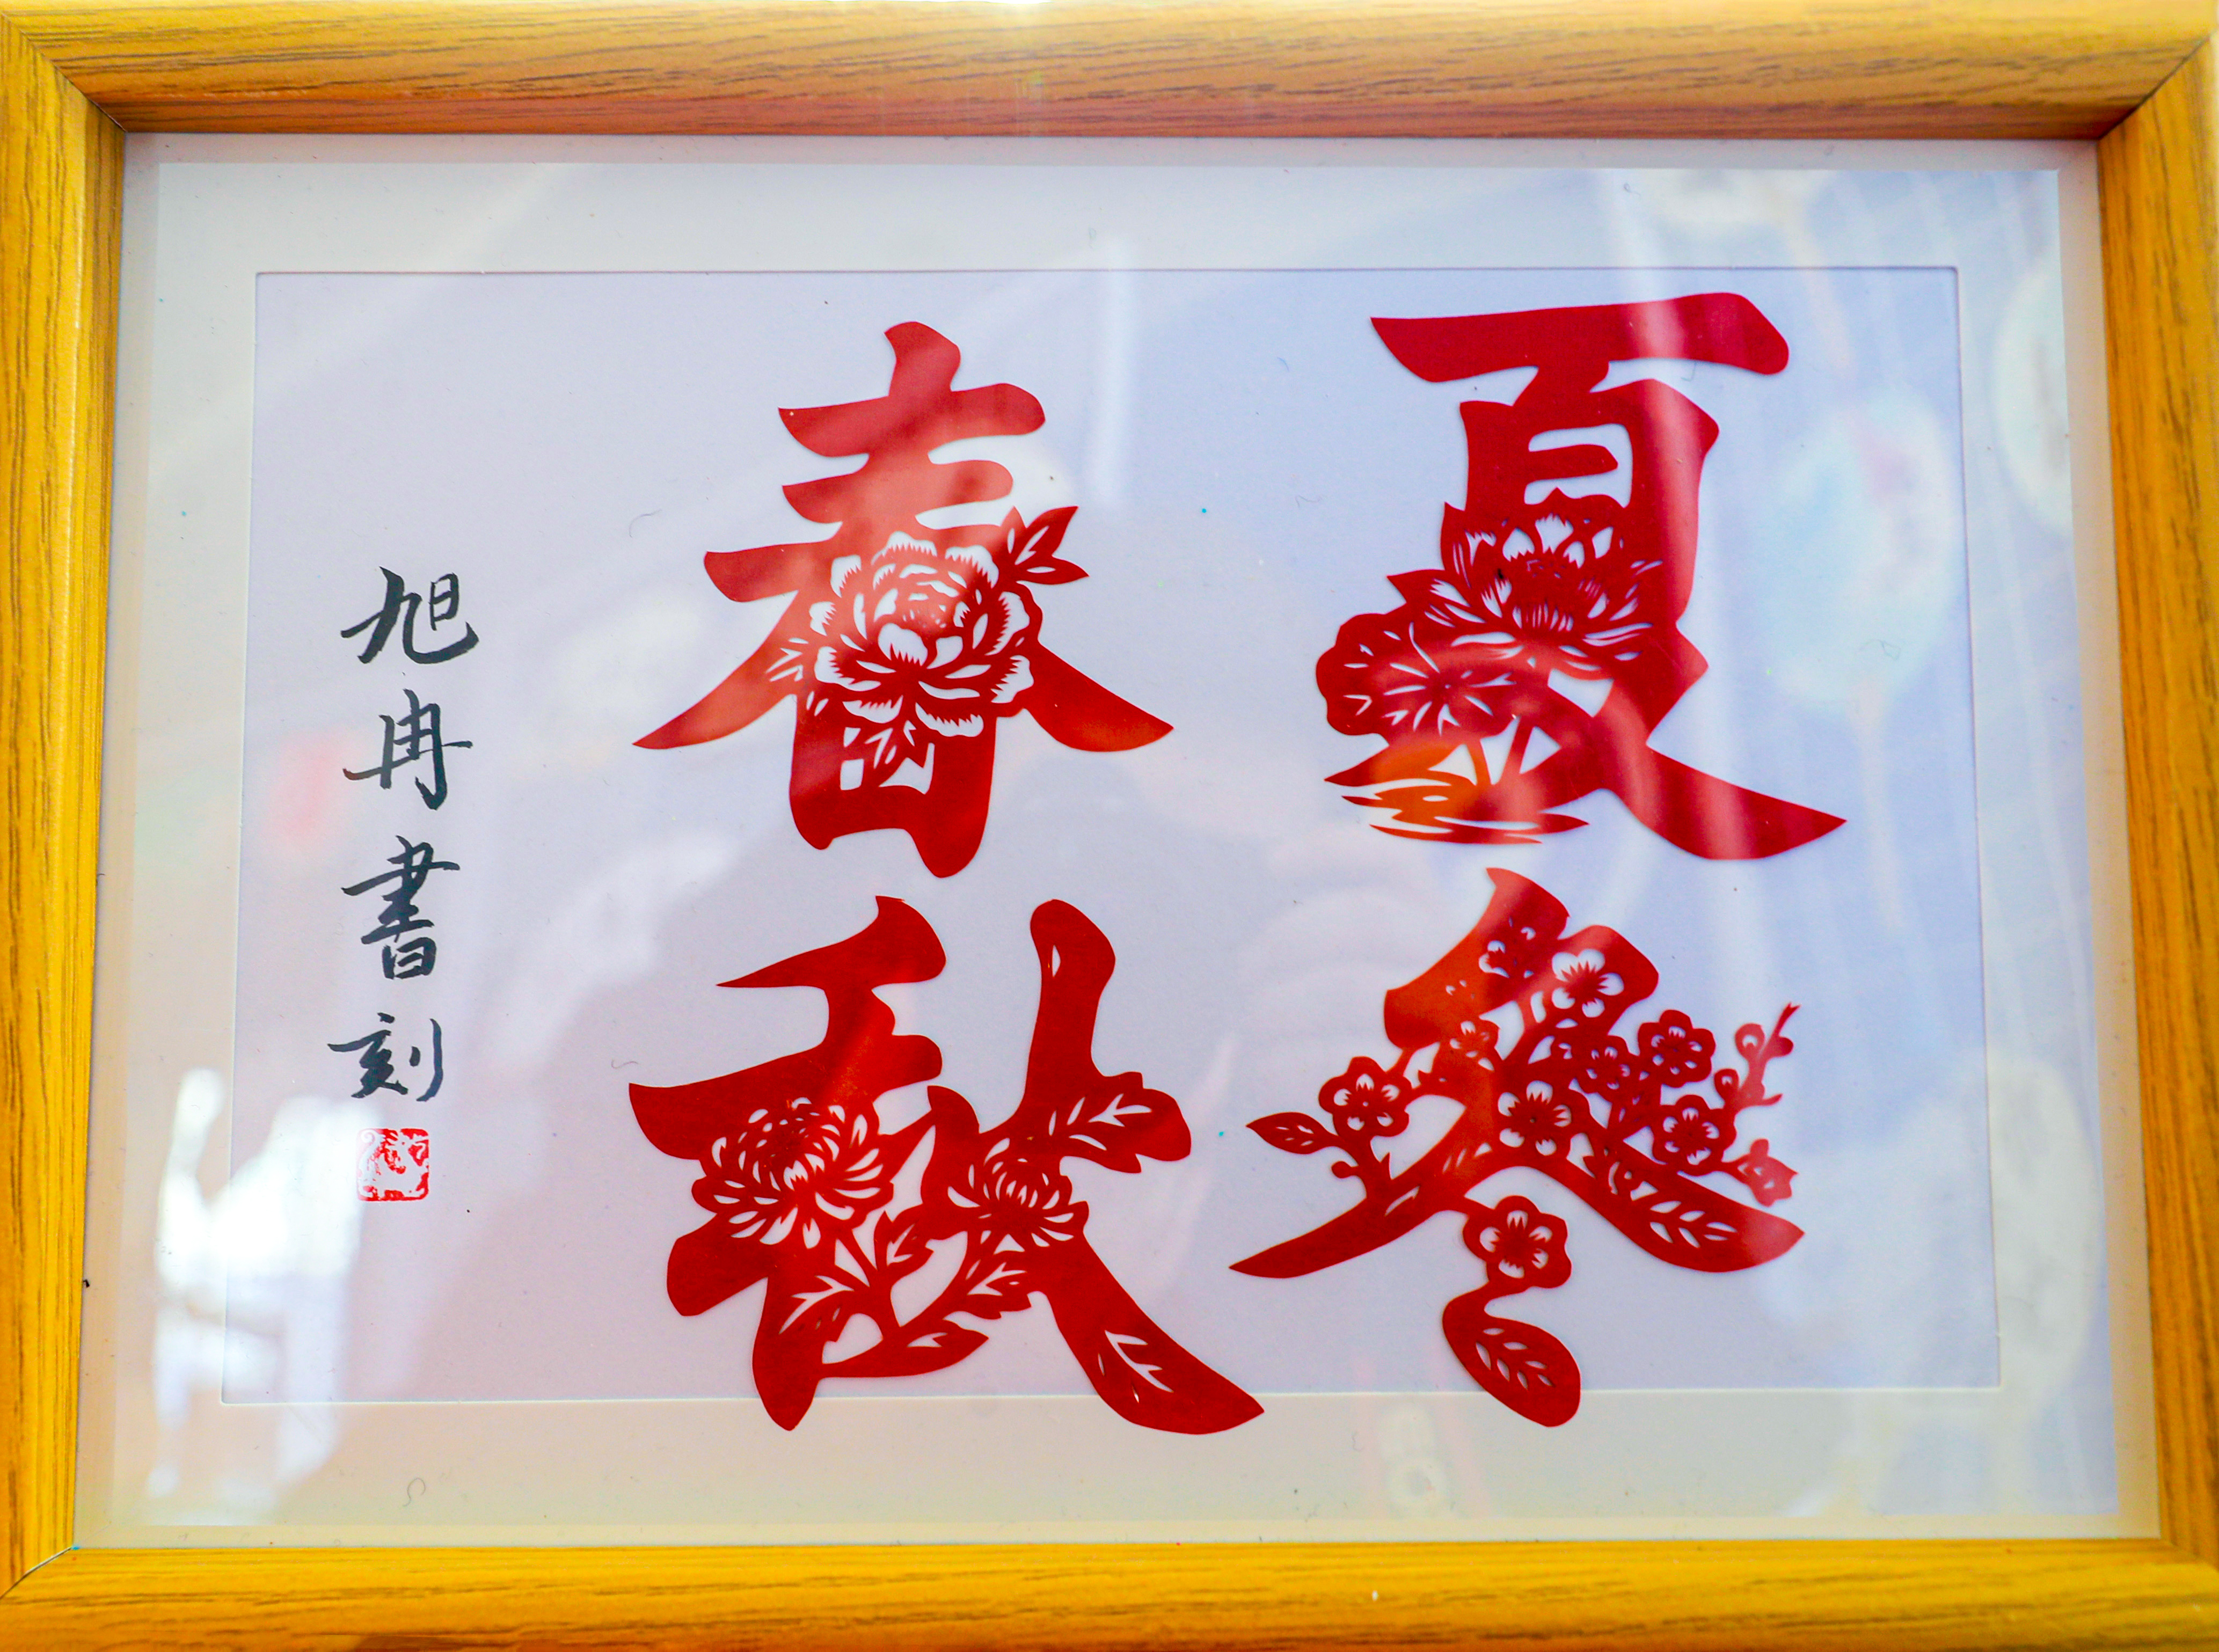 夏冬
春秋
旭冉書刻